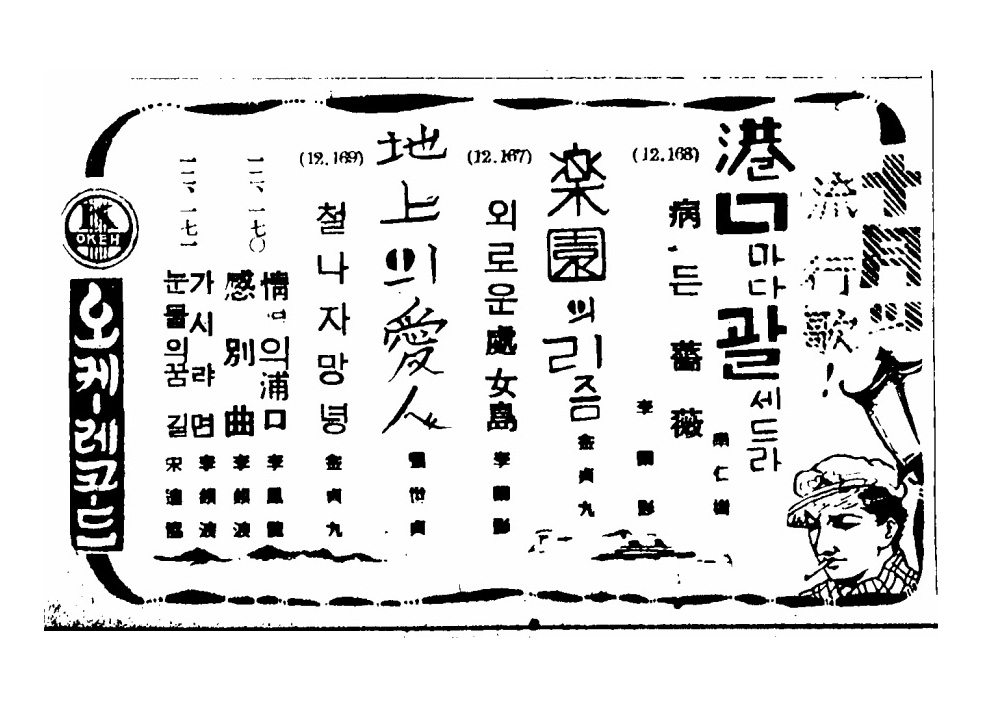 十月의
流行歌!
港口마다괄세드라
南仁樹
(12.168)
病든薔薇
李蘭影
楽園의리즘
金貞九
(12.167)
외로운處女島
李蘭影
地上의愛人
張世貞
(12.169)
철나자망녕
金貞九
一二、一七〇
情의浦口
李鳳龍
感別曲
李銀波
一二、一七一
가시랴면
李銀波
눈물의꿈길
宋達協
K
OKEH
오케-레코-드